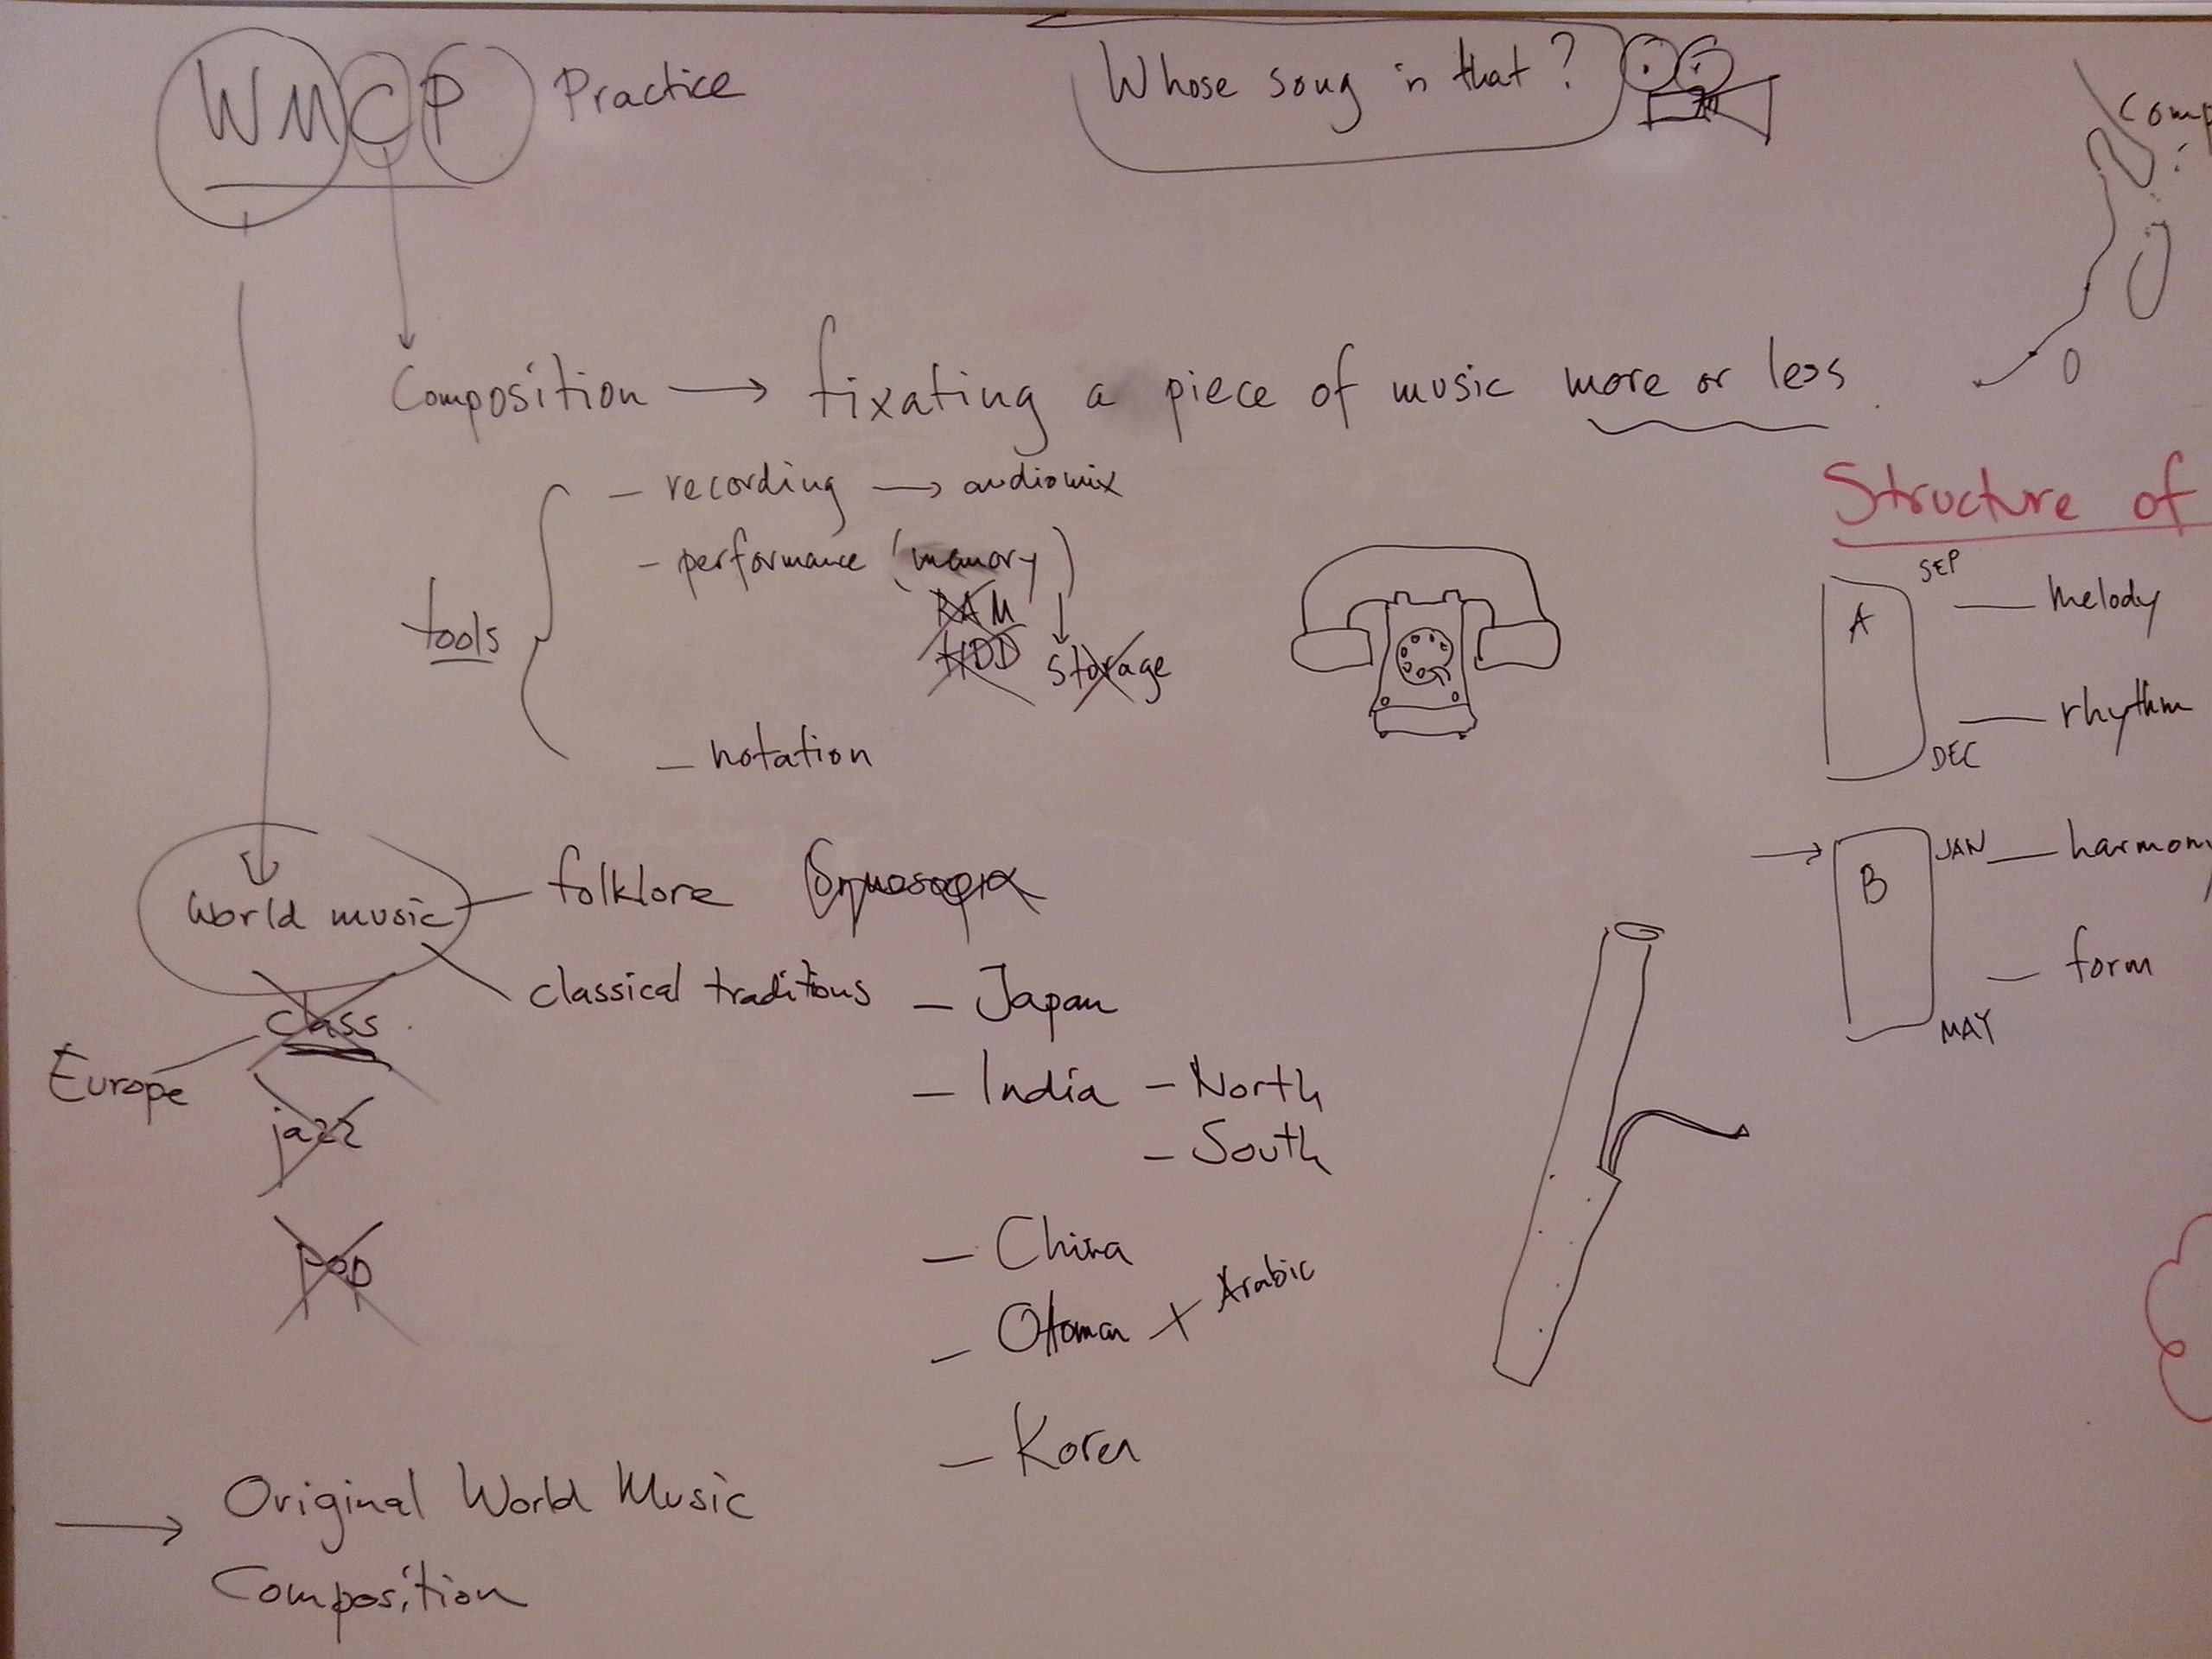 WMCP Practice
Whose song is that?
Comp
Composition → fixating a piece of music more or less.
tools
– recording → audiomix
– performance (memory)
RAM
HDD
↓
Storage
– notation
Structure of
A
SEP
— Melody
— rhythm
DEC
→ B
JAN — harmony
— form
MAY
World music
– folklore
classical traditions – Japan
– India – North
– South
– China
– Otoman + Arabic
– Korea
class.
Europe
jazz
pop
→ Original World Music
Composition